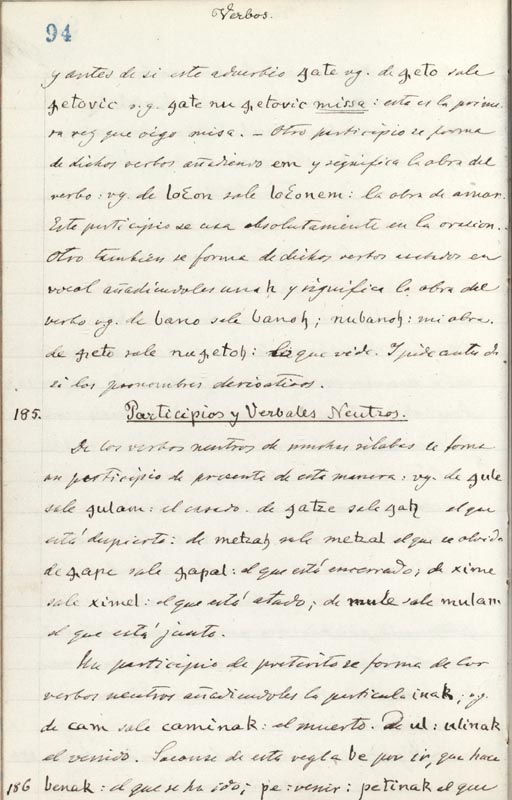 Verbos.
94
y antes de si este adverbio gate vg. de geto sale
getovic v.g. gate nu getovic missa: esto es la prime-
ra vez que oigo misa. – Otro participio se forma
de dichos verbos añadiendo em y significa la obra del
verbo: vg. de loƐon sale loƐonem: la obra de amar.
Este participio se usa absolutamente en la oracion.
Otro tambien se forma de dichos verbos acabados en
vocal añadiendoles una h y significa la obra del
verbo vg. de bano sale banoh; nubanoh: mi obra.
de geto sale nugetoh: lo que vide. I pide antes de
si los pronombres derivativos.
185. Participios y Verbales Neutros.
De los verbos neutros de muchas silabas se forma
un participio de presente de esta manera: vg. de gule
sale gulam: el echado. de gatze sale gatz el que
está despierto: de metzah sale metzal el que se olvida
de gape sale gapal: el que está encerrado; de xime
sale ximel: el que está atado; de mule sale mulam
el que está junto.
Un participio de preterito se forma de los
verbos neutros añadiendoles la particula inak; vg.
de cam sale caminak: el muerto. De ul: ulinak
el venido. Sacanse de esta regla be por ir, que hace
186 benak: el que se ha ido; pe: venir: petinak el que